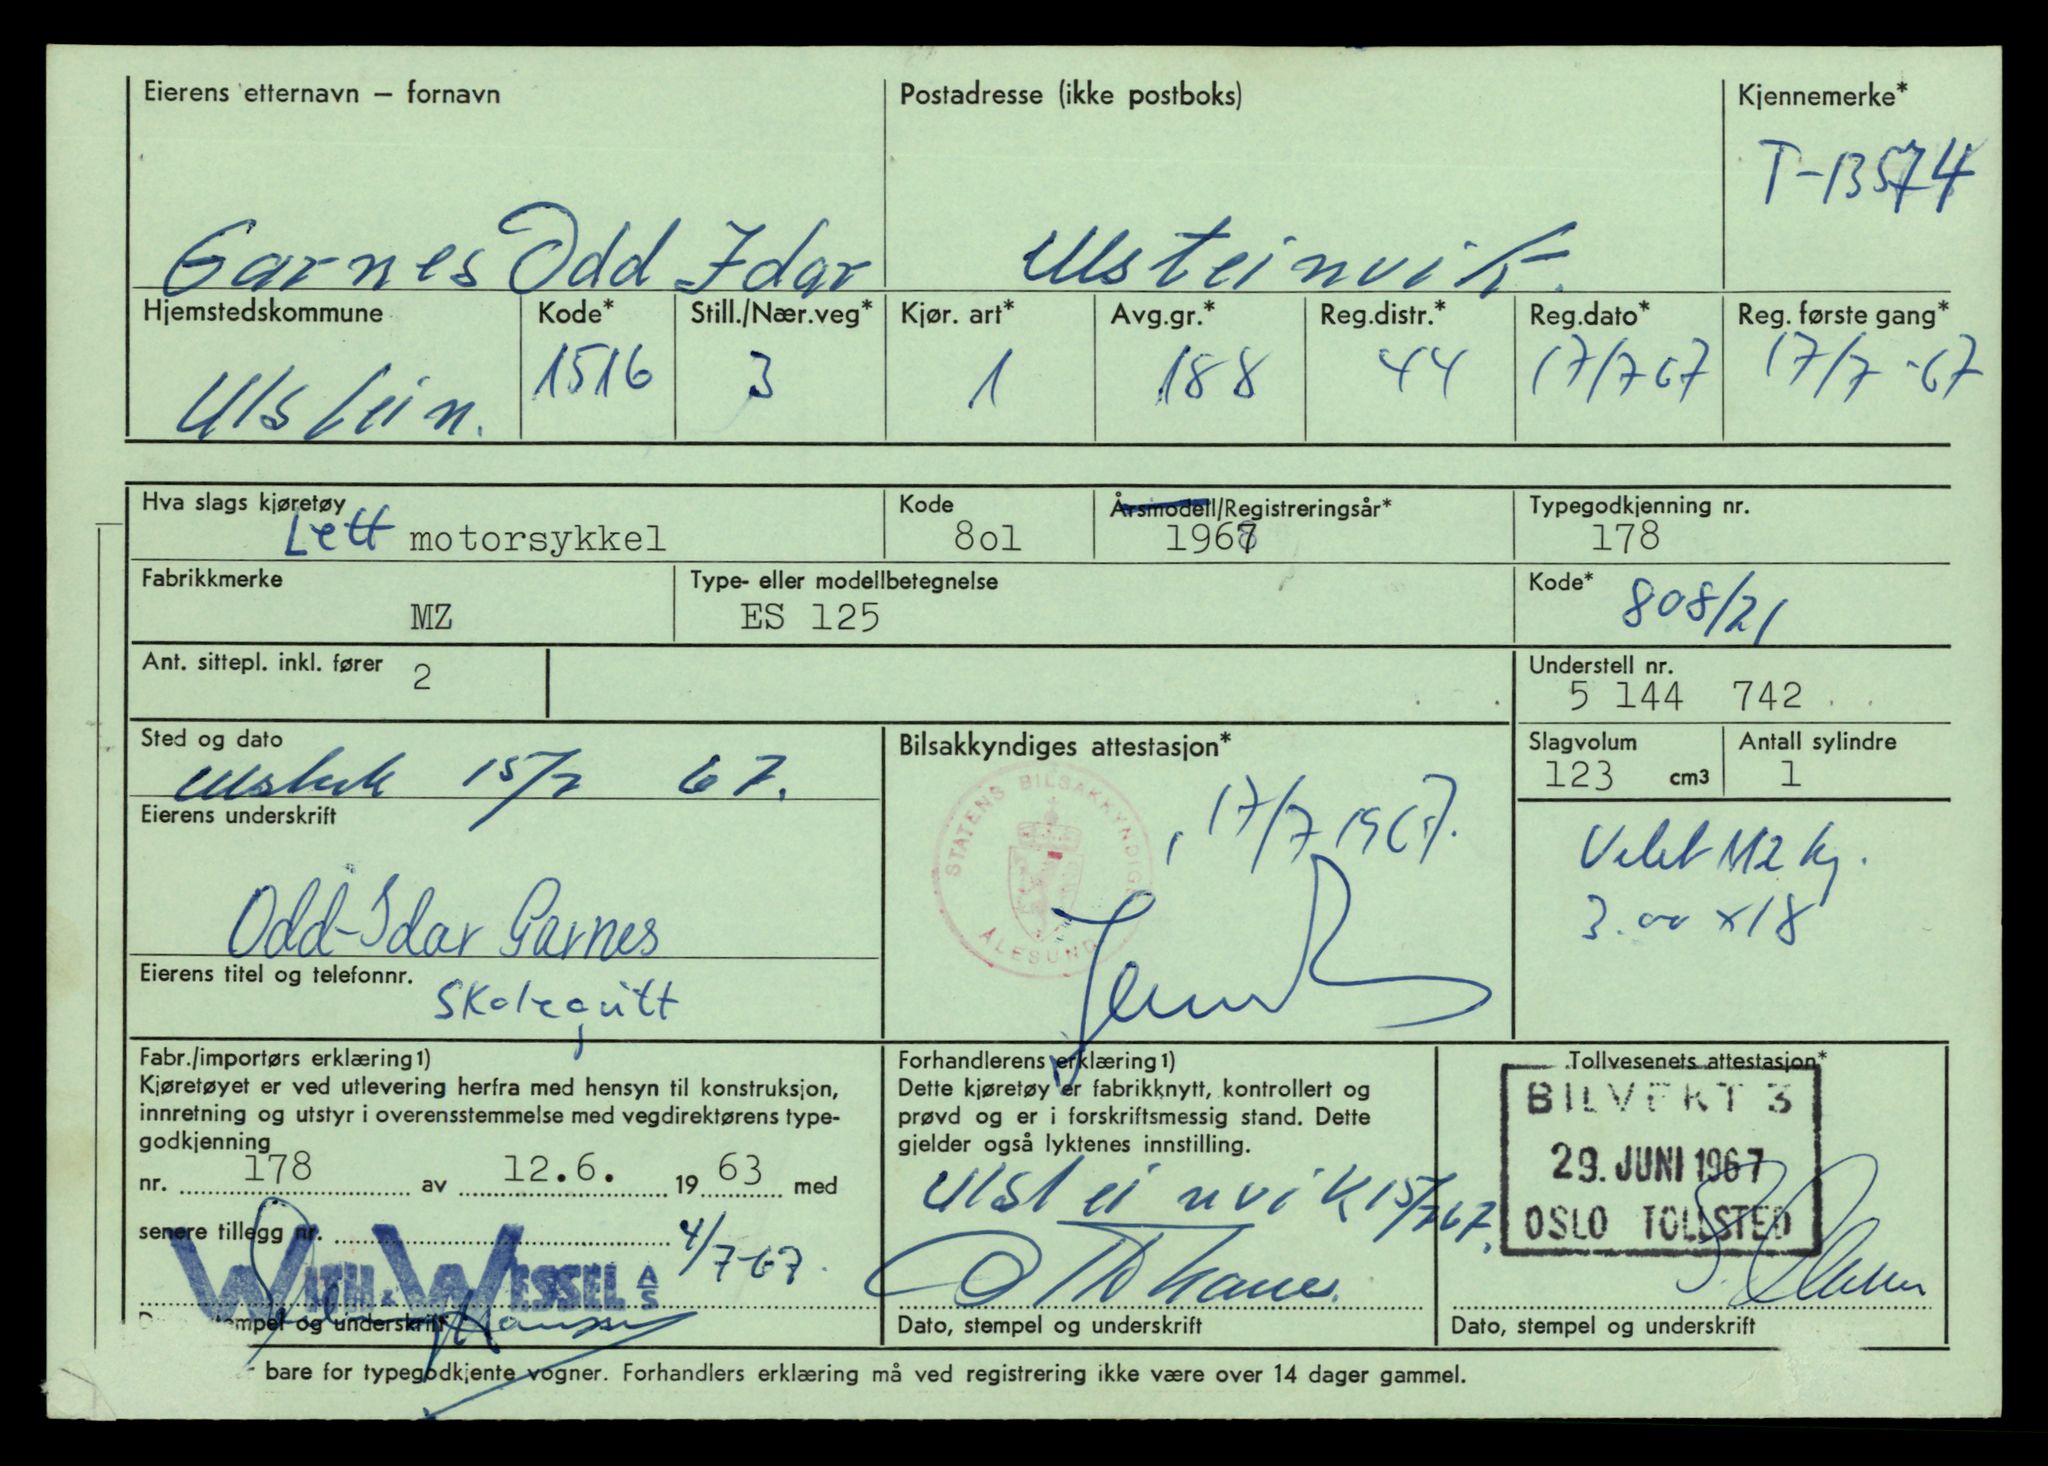 Eierens etternavn – fornavn
Postadresse (ikke postboks)
Kjennemerke*
T-13574
Garnes Odd Idar
Ulsteinvik.
Hjemstedskommune
Kode*
Still./Nær.veg*
Kjør. art*
Avg.gr.*
Reg.distr.*
Reg.dato*
Reg. første gang*
Ulstein.
1516
3
1
188
44
17/7 67
17/7 -67
Hva slags kjøretøy
Kode
Årsmodell/Registreringsår*
Typegodkjenning nr.
Lett motorsykkel
8o1
1967
178
Fabrikkmerke
Type- eller modellbetegnelse
Kode*
MZ
ES 125
808/21
Ant. sittepl. inkl. fører
2
Understell nr.
5 144 742
Sted og dato
Bilsakkyndiges attestasjon*
Slagvolum
Antall sylindre
15/7 67.
123 cm3
1
STATENS BILSAKKYNDIGE
ÅLESUND
17/7 1967.
Eierens underskrift
Vekt 112 kg.
3.00 x 18
Odd-Idar Garnes
Eierens titel og telefonnr.
Skolegutt
Fabr./importørs erklæring1)
Kjøretøyet er ved utlevering herfra med hensyn til konstruksjon,
innretning og utstyr i overensstemmelse med vegdirektørens type-
godkjenning
nr. 178 av 12.6. 1963 med
senere tillegg nr.
4/7-67.
WITH & WESSEL A/S
stempel og underskrift
Forhandlerens erklæring1)
Dette kjøretøy er fabrikknytt, kontrollert og
prøvd og er i forskriftsmessig stand. Dette
gjelder også lyktenes innstilling.
Ulsteinvik 15/7 67.
Dato, stempel og underskrift
Tollvesenets attestasjon*
BILVEKT 3
29. JUNI 1967
OSLO TOLLSTED
Dato, stempel og underskrift
bare for typegodkjente vogner. Forhandlers erklæring må ved registrering ikke være over 14 dager gammel.